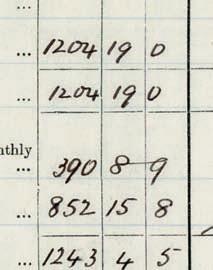 ...
... 1204 19 0
... 1204 19 0
nthly
... 390 8 9
... 852 15 8
... 1243 4 5